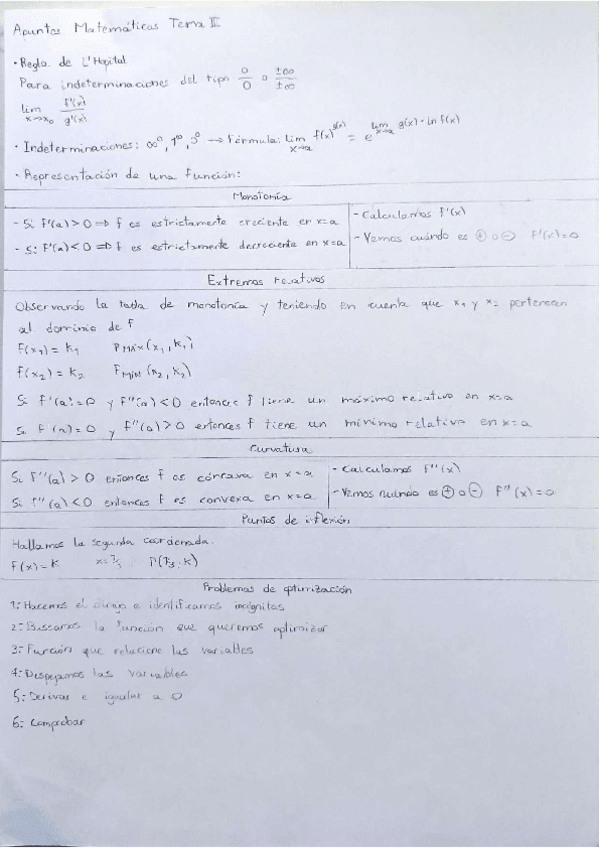 Apuntes Matemáticas Tema II
· Regla de L'Hopital
Para indeterminaciones del tipo 0/0 o ±∞/±∞
lim x→x₀ f'(x)/g'(x)
· Indeterminaciones: ∞⁰, 1^∞, → Fórmula: lim x→a f(x)^g(x) = e^(lim x→a g(x) · ln f(x))
· Representación de una función:
Monotonía
- Si f'(a) > 0 ⇒ f es estrictamente creciente en x=a
- Si f'(a) < 0 ⇒ f es estrictamente decreciente en x=a
- Calculamos f'(x)
- Vemos cuándo es ⊕ o ⊖ f'(x)=0
Extremos relativos
Observando la tabla de monotonía y teniendo en cuenta que x₁ y x₂ pertenecen
al dominio de f
f(x₁) = k₁ PMÁX(x₁, k₁)
f(x₂) = k₂ PMÍN(x₂, k₂)
Si f'(a)=0 y f''(a)<0 entonces f tiene un máximo relativo en x=a
Si f'(a)=0 y f''(a)>0 entonces f tiene un mínimo relativo en x=a
Curvatura
Si f''(a) > 0 entonces f es cóncava en x=a
Si f''(a) < 0 entonces f es convexa en x=a
- Calculamos f''(x)
- Vemos cuándo es ⊕ o ⊖ f''(x)=0
Puntos de inflexión
Hallamos la segunda coordenada.
f(x)=k
Problemas de optimización
1: Hacemos el dibujo e identificamos incógnitas
2: Buscamos la función que queremos optimizar
3: Función que relacione las variables
4: Despejamos las variables
5: Derivar e igualar a 0
6: Comprobar